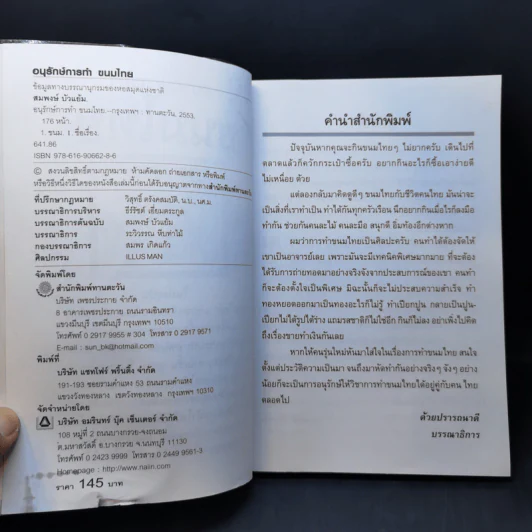 อนุรักษ์การทำ ขนมไทย
ข้อมูลทางบรรณานุกรมของหอสมุดแห่งชาติ
สมพงษ์ บัวแย้ม.
อนุรักษ์การทำ ขนมไทย.--กรุงเทพฯ : ทานตะวัน, 2553.
176 หน้า.
1. ขนม. I. ชื่อเรื่อง.
641.86
ISBN 978-616-90662-8-6
© สงวนลิขสิทธิ์ตามกฎหมาย ห้ามคัดลอก ถ่ายเอกสาร หรือพิมพ์
หรือวิธีหนึ่งวิธีใดของหนังสือเล่มนี้ก่อนได้รับอนุญาตจากทางสำนักพิมพ์ทานตะวัน
ที่ปรึกษากฎหมาย วิสุทธิ์ ตรังคสมบัติ, น.บ., นศ.ม.
บรรณาธิการบริหาร ธีร์รัชต์ เอี่ยมตระกูล
บรรณาธิการต้นฉบับ สมพงษ์ บัวแย้ม
บรรณาธิการ ระวิวรรณ หีบท่าไม้
กองบรรณาธิการ สมพร เกิดแก้ว
ศิลปกรรม ILLUS MAN
จัดพิมพ์โดย
สำนักพิมพ์ทานตะวัน
บริษัท เพชรประกาย จำกัด
8 อาคารเพชรประกาย ถนนรามอินทรา
แขวงมีนบุรี เขตมีนบุรี กรุงเทพฯ 10510
โทรศัพท์ 0 2917 9955 # 304 โทรสาร 0 2917 9571
E-mail : sun_bk@hotmail.com
พิมพ์ที่
บริษัท แซทโฟร์ พริ้นติ้ง จำกัด
191-193 ซอยรามคำแหง 53 ถนนรามคำแหง
แขวงวังทองหลาง เขตวังทองหลาง กรุงเทพฯ 10310
จัดจำหน่ายโดย
บริษัท อมรินทร์ บุ๊ค เซ็นเตอร์ จำกัด
108 หมู่ที่ 2 ถนนบางกรวย-จงถนอม
ต.มหาสวัสดิ์ อ.บางกรวย จ.นนทบุรี 11130
โทรศัพท์ 0 2423 9999 โทรสาร 0 2449 9561-3
Homepage : http://www.naiin.com
ราคา 145 บาท
คำนำสำนักพิมพ์
ปัจจุบันหากคุณจะกินขนมไทยๆ ไม่ยากครับ เดินไปที่
ตลาดแล้วก็ควักกระเป๋าซื้อครับ อยากกินอะไรก็ซื้อเอาง่ายดี
ไม่เหนื่อย ด้วย
แต่ลองกลับมาคิดดูดีๆ ขนมไทยกับชีวิตคนไทย มันน่าจะ
เป็นสิ่งที่เราทำเป็น ทำได้กันทุกครัวเรือน นึกอยากกินเมื่อไรก็ลงมือ
ทำกัน ช่วยกันคนละไม้ คนละมือ สนุกดี อิ่มท้องอีกต่างหาก
ผมว่าการทำขนมไทยเป็นศิลปะครับ คนทำได้ต้องจัดให้
เขาเป็นอาจารย์เลย เพราะมันจะมีเทคนิคพิเศษมากมาย ที่จะต้อง
ได้รับการถ่ายทอดมาอย่างจริงจังจากประสบการณ์ของเขา คนทำ
ก็จะต้องตั้งใจเป็นพิเศษ มิฉะนั้นก็จะไม่ประสบความสำเร็จ ทำ
ทองหยอดออกมาเป็นทองอะไรก็ไม่รู้ ทำเปียกปูน กลายเป็นปูน-
เปียกไม่ได้รูปได้ร่าง แถมรสชาติก็ไม่ใช่อีก กินก็ไม่ลง อย่าเพิ่งไปคิด
ถึงเรื่องขายทำเงินกันเลย
หากให้คนรุ่นใหม่หันมาใส่ใจในเรื่องการทำขนมไทย สนใจ
ตั้งแต่ประวัติความเป็นมา จนถึงมาหัดทำกันอย่างจริงๆ จังๆ อย่าง
น้อยก็จะเป็นการอนุรักษ์ให้วิชาการทำขนมไทยได้อยู่คู่กับคน ไทย
ตลอดไป
ด้วยปรารถนาดี
บรรณาธิการ